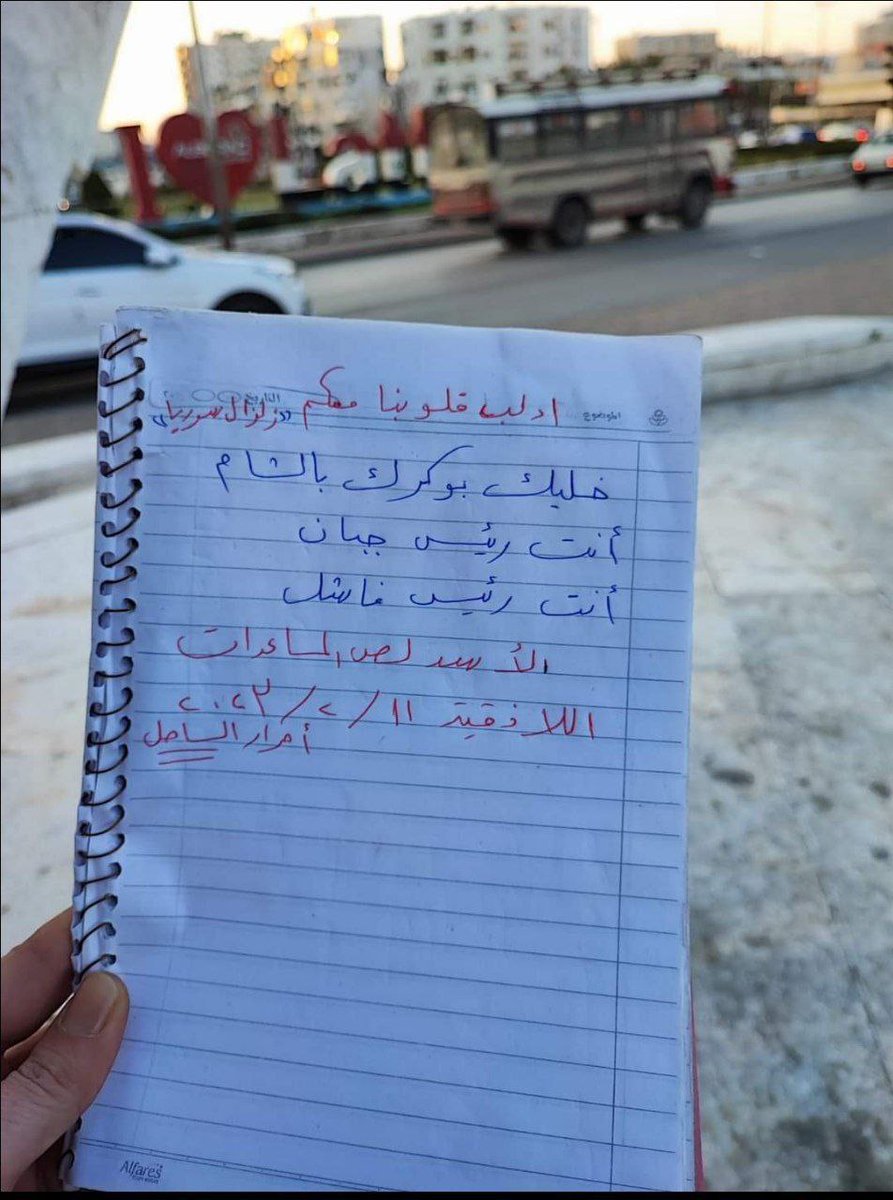 I
الموضوع
التاريخ
ادلب قلوبنا معكم "زلزال سوريا"
خليك بوكرك بالشام
أنت رئيس جبان
أنت رئيس فاشل
الأسد لص المساعدات
اللاذقية ١١/٢/٢٠٢٣
أحرار الساحل
Alfares